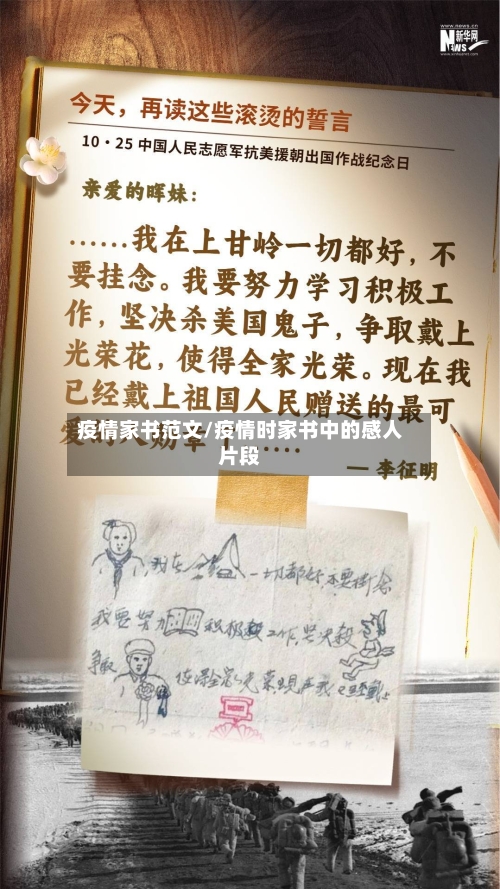 www.news.cn
新华网
NEWS
www.xinhuanet.com
今天，再读这些滚烫的誓言
10·25 中国人民志愿军抗美援朝出国作战纪念日
亲爱的晖妹：
……我在上甘岭一切都好，不
要挂念。我要努力学习积极工
作，坚决杀美国鬼子，争取戴上
光荣花，使得全家光荣。现在我
已经戴上祖国人民赠送的最可
疫情家书范文/疫情时家书中的感人
片段
——李征明
我在
一切都好，不要挂念
我要努力
积极
工作，坚决杀
争取
使得全家光荣现在我已经戴上